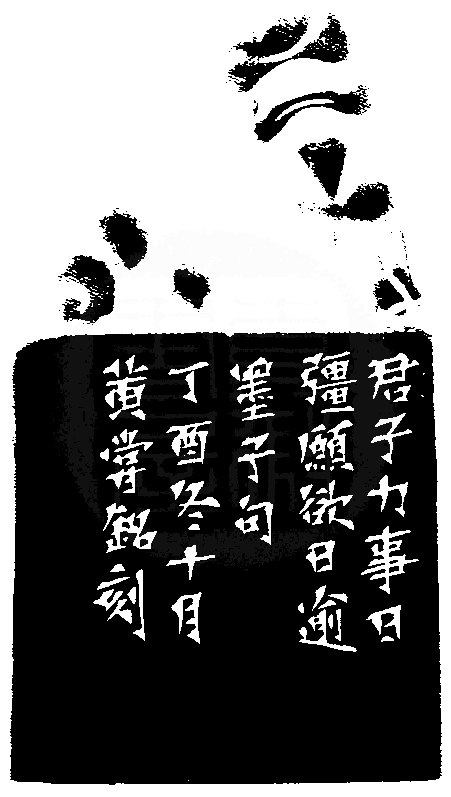 君子力事日
彊願欲日逾
墨子句
丁酉冬十月
黃嘗銘刻